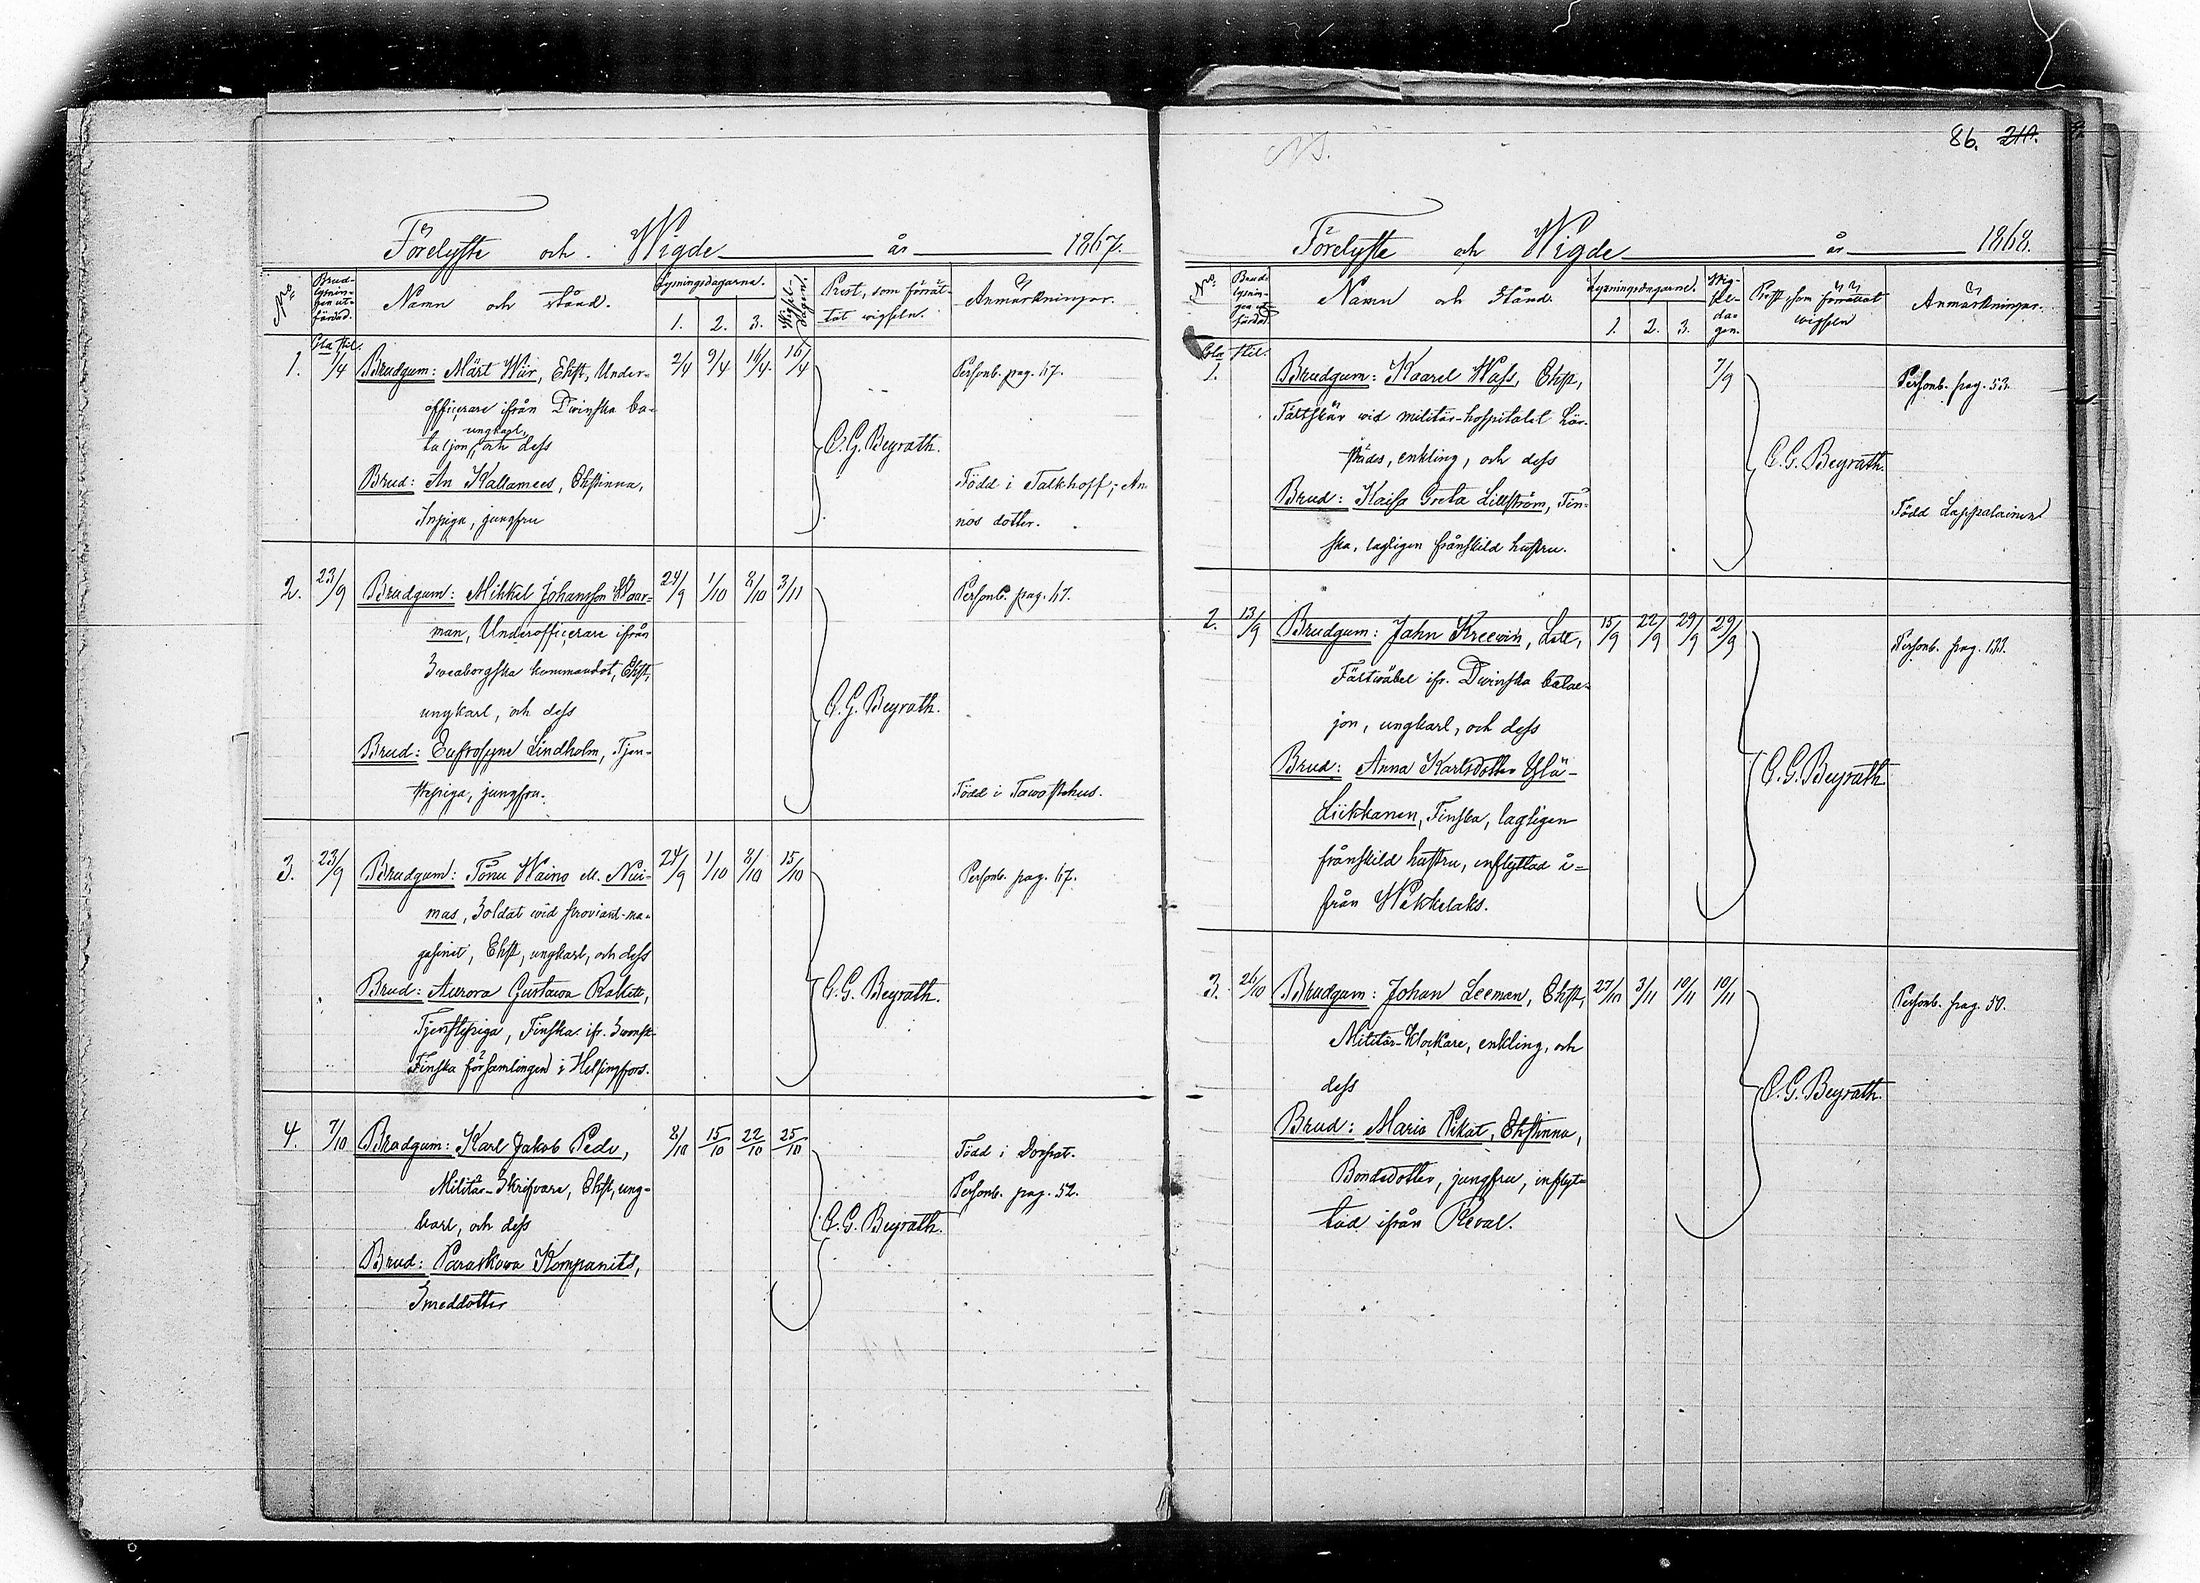 86. 210.
Förelyste och Wigde år 1867.
No. Brudlysningen utfärdad. Namn och stånd. Lysningsdagarna. 1. 2. 3. Wigseldagen. Prest, som förrättat wigseln. Anmärkningar.
Gla stil.
1. 1/4 Brudgum: Märt Wiir, Ehst, Under- 2/4 9/4 16/4 16/4 Personb. pag. 47.
officerare ifrån Dwinska ba-
ungkarl,
taljon, och dess C. G. Beyrath.
Brud: An Kallamees, Ehstinna, Född i Talkhoff; An
Inpiga, jungfru nos dotter.
2. 23/9 Brudgum: Mihkel Johansson Waar- 24/9 1/10 8/10 3/11 Personb. pag. 47.
man, Underofficerare ifrån
Sweaborgska kommandot, Ehst,
ungkarl, och dess C. G. Beyrath.
Brud: Eufrosyne Lindholm, Tjen-
stepiga, jungfru. Född i Tawastehus.
3. 23/9 Brudgum: Tönu Waino M. Nui- 24/9 1/10 8/10 15/10 Personb. pag. 67.
mas, Soldat wid proviant-ma-
gasinet, Ehst, ungkarl, och dess
Brud: Aurora Gustawa Rakett, C. G. Beyrath.
Tjenstepiga, Finska ifr. Swensk-
Finska församlingen i Helsingfors.
4. 7/10 Brudgum: Karl Jakob Pede, 8/10 15/10 22/10 25/10 Född i Dorpat.
Militär-Skrifvare, Ehst, ung- Personb. pag. 52.
karl, och dess C. G. Beyrath.
Brud: Paraskowa Kompanits,
Smeddotter
Förelyste och Wigde år 1868.
No. Brudlysningen utfärdad. Namn och Stånd. Lysningsdagarne. 1. 2. 3. Wigseldagen. Prest, som förrättat wigseln Anmärkningar.
Gla stil.
1. Brudgum: Kaarel Wass, Ehst, 7/9 Personb. pag. 53.
Fältskär wid militär-hospitalet här-
städes, enkling, och dess C. G. Beyrath.
Brud: Kaisa Greta Lillström, Fin- Född Lappalainen
ska, lagligen frånskild hustru.
2. 13/9 Brudgum: Jahn Kreewin, Lett, 15/9 22/9 29/9 29/9 Personb. pag. 133.
Fältwäbel ifr. Dwinska batal-
jon, ungkarl, och dess
Brud: Anna Karlsdotter Ylä- C. G. Beyrath
Liikkanen, Finska, lagligen
frånskild hustru, inflyttad i-
från Wekkelaks.
3. 26/10 Brudgum: Johan Leeman, Ehst, 27/10 3/11 10/11 10/11 Personb. pag. 50.
Militär-Klockare, enkling, och
dess C. G. Beyrath.
Brud: Maria Pikat, Ehstinna,
Bondedotter, jungfru, inflyt-
tad ifrån Reval.